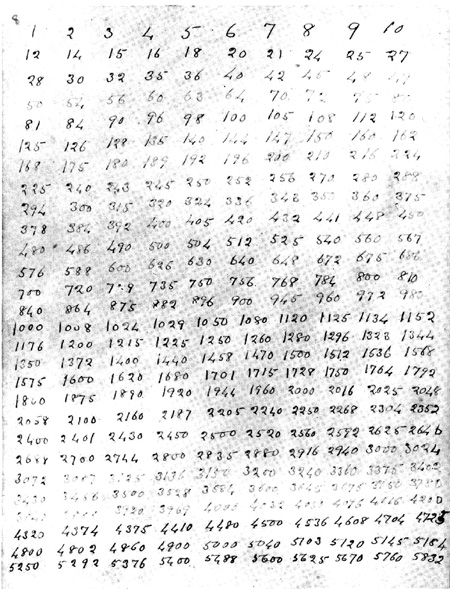 8
1 2 3 4 5 6 7 8 9 10
12 14 15 16 18 20 21 24 25 27
28 30 32 35 36 40 42 45 48 49
50 54 56 60 63 64 70 72 75 80
81 84 90 96 98 100 105 108 112 120
125 126 128 135 140 144 147 150 160 162
168 175 180 189 192 196 200 210 216 224
225 240 243 245 250 252 256 270 280 288
294 300 315 320 324 336 343 350 360 375
378 384 392 400 405 420 432 441 448 450
480 486 490 500 504 512 525 540 560 567
576 588 600 625 630 640 648 672 675 686
700 720 729 735 750 756 768 784 800 810
840 864 875 882 896 900 945 960 972 980
1000 1008 1024 1029 1050 1080 1120 1125 1134 1152
1176 1200 1215 1225 1250 1260 1280 1296 1323 1344
1350 1372 1400 1440 1458 1470 1500 1512 1536 1568
1575 1600 1620 1680 1701 1715 1728 1750 1764 1792
1800 1875 1890 1920 1944 1960 2000 2016 2025 2048
2058 2100 2160 2187 2205 2240 2250 2268 2304 2352
2400 2401 2430 2450 2500 2520 2560 2592 2625 2646
2688 2700 2744 2800 2835 2880 2916 2940 3000 3024
3072 3087 3125 3136 3150 3200 3240 3360 3375 3402
3430 3456 3500 3528 3584 3600 3645 3675 3750 3780
3920 3969 4000 4032 4050 4116 4200
4320 4374 4375 4410 4480 4500 4536 4608 4704 4725
4800 4802 4860 4900 5000 5040 5103 5120 5145 5184
5250 5292 5376 5400 5488 5600 5625 5670 5760 5832